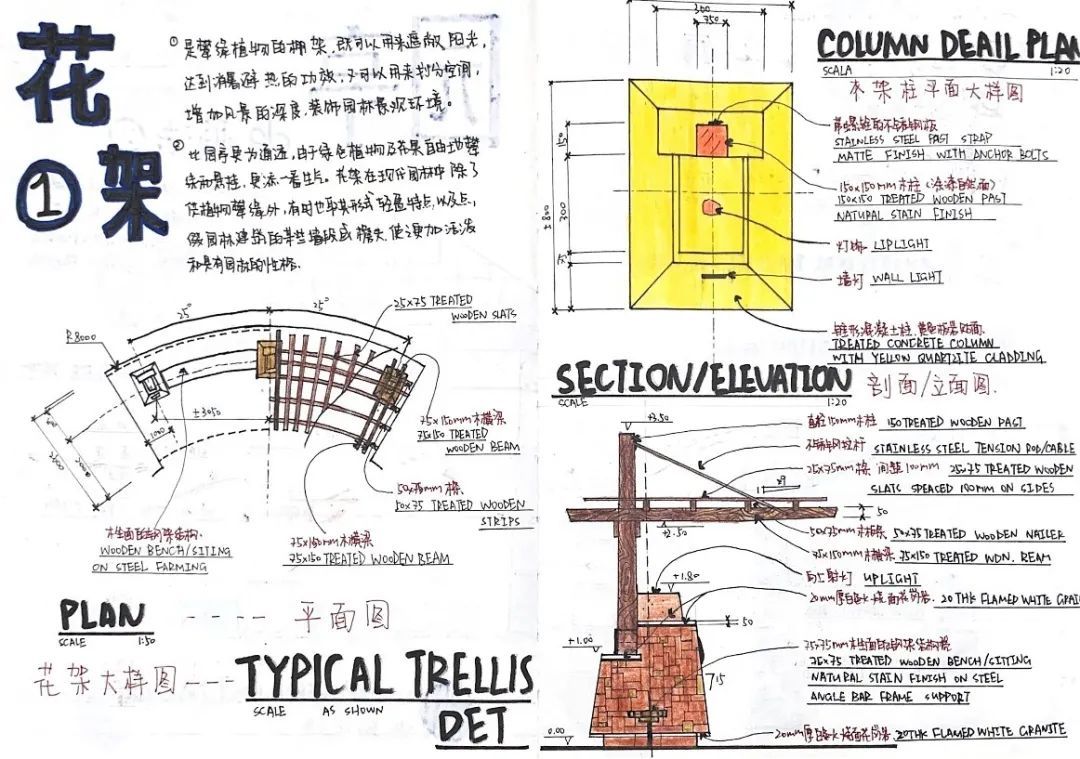 花架
①
① 是攀缘植物的棚架,既可以用来遮蔽阳光,
达到消暑避热的功效,又可以用来划分空间,
增加风景的深度,装饰园林景观环境。
②
由于绿色植物及花果自由地攀
花架在现代园林中除了
供植物攀缘外,有时也取其形式轻盈特点,以
园林建筑的某些墙段或檐头,使之更加活泼
和具有园林的性格.
25°
25°
R8000
25x75 TREATED
WOODEN SLATS
±3050
1000
75x150mm木横梁
75x150 TREATED
WOODEN BEAM
50x75mm木条
50x75 TREATED WOODEN
STRIPS
75x150mm木横梁
75x150 TREATED WOODEN BEAM
木坐面
WOODEN BENCH/SITING
ON STEEL FARMING
PLAN ---- 平面图
SCALE 1:50
花架大样图---
TYPICAL TRELLIS
DET
SCALE AS SHOWN
COLUMN DEAIL PLAN
SCALA 1:20
木架柱平面大样图
300
750
150
±800
300
75
STAINLESS STEEL PAST STRAP
MATTE FINISH WITH ANCHOR BOLTS
150x150mm木柱(涂漆自然面)
150x150 TREATED WOODEN PAST
NATURAL STAIN FINISH
LIPLIGHT
墙灯 WALL LIGHT
锥形混凝土柱,
TREATED CONCRETE COLUMN
WITH YELLOW QUARTZITE CLADDING
SECTION/ELEVATION 剖面/立面图.
SCALE 1:20
+3.50
直径150mm木柱 150 TREATED WOODEN PAST
不锈钢拉杆 STAINLESS STEEL TENSION ROD/CABLE
25x75mm条 间距100mm 25x75 TREATED WOODEN
SLATS SPEACED 100MM ON SIDES
50
50x75mm木板条 50x75 TREATED WOODEN NAILER
+2.50
75x150mm木横梁 75x150 TREATED WDN. BEAM
射灯 UPLIGHT
+1.80
20 THK FLAMED WHITE GRAI
50
+1.00
75x75 TREATED WOODEN BENCH/SITTING
NATURAL STAIN FINISH ON STEEL
ANGLE BAR FRAME SUPPORT
715
0.00
20THK FLAMED WHITE GRANITE